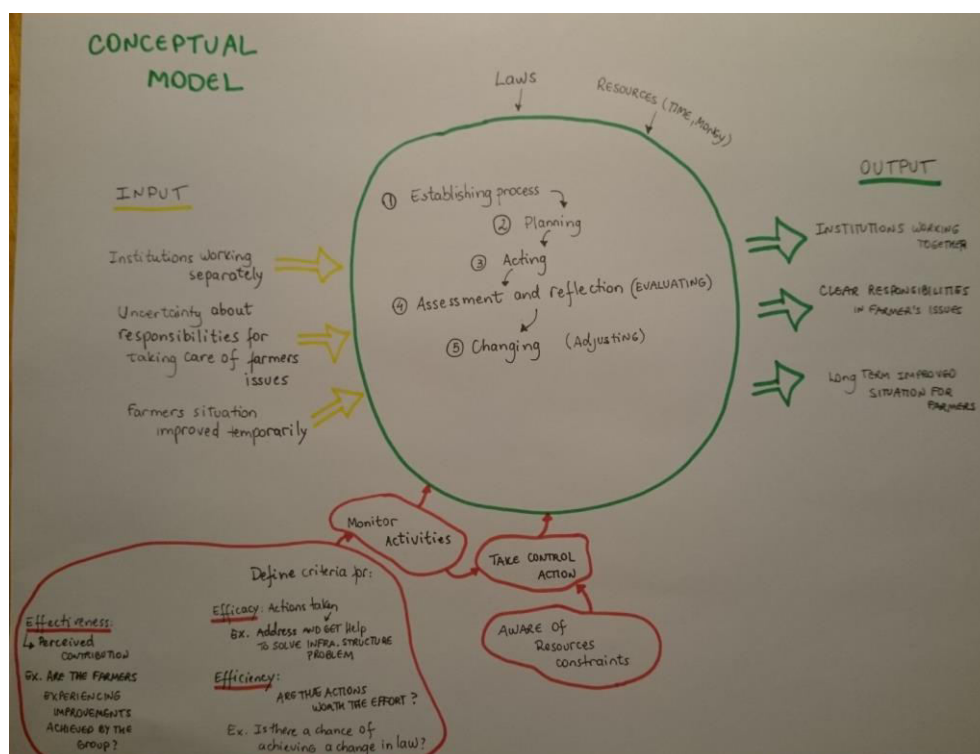 CONCEPTUAL
MODEL
Laws
RESOURCES (TIME, MONEY)
INPUT
Institutions working
separately
Uncertainty about
responsibilities for
taking care of farmers
issues
Farmers situation
improved temporarily
① Establishing process
② Planning
③ Acting
④ Assessment and reflection (EVALUATING)
⑤ Changing (Adjusting)
OUTPUT
INSTITUTIONS WORKING
TOGETHER
CLEAR RESPONSIBILITIES
IN FARMER'S ISSUES
Long TERM IMPROVED
SITUATION FOR
FARMERS
Monitor
Activities
TAKE CONTROL
ACTION
AWARE OF
Resources
constraints
Define criteria for:
Effectiveness:
Perceived
CONTRIBUTION
EX. ARE THE FARMERS
EXPERIENCING
IMPROVEMENTS
ACHIEVED BY THE
GROUP?
Efficacy: Actions taken
Ex. Address AND GET Help
TO SOLVE INFRA. STRUCTURE
PROBLEM
Efficiency:
ARE THE ACTIONS
WORTH THE EFFORT?
Ex. Is there a chance of
achieving a change in law?